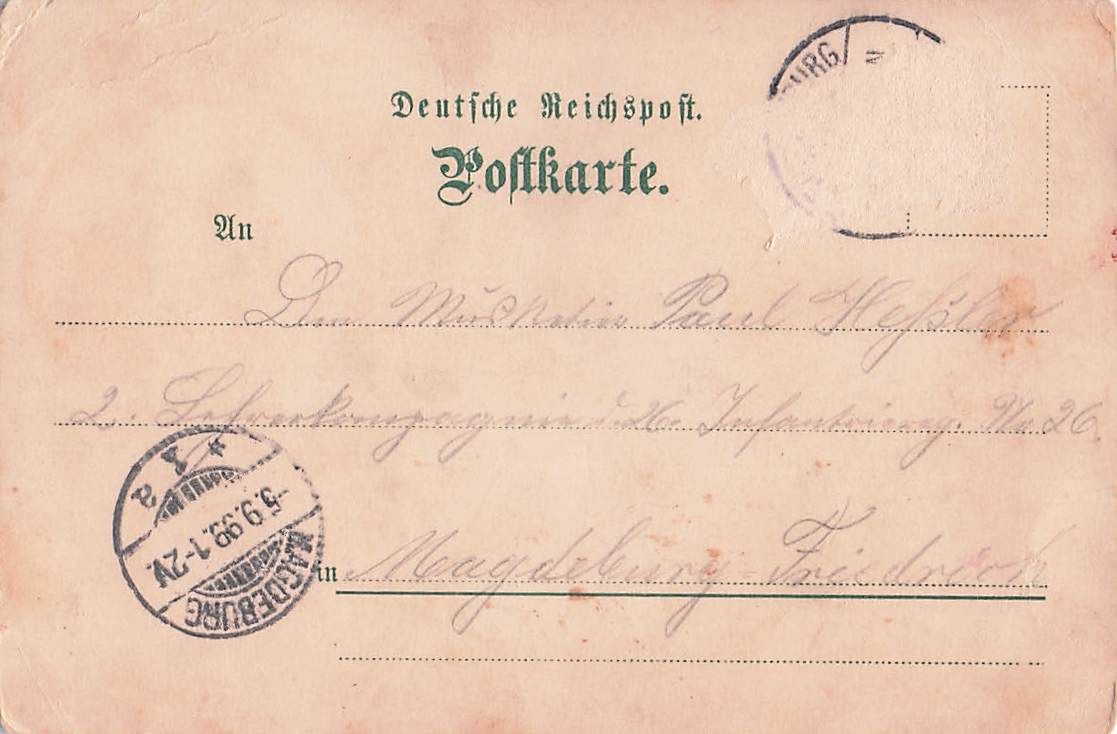 URG
Deutsche Reichspost.
Postkarte.
An
Den Musketier Paul Heßler
2. Lehrerkompagnie d. 26. Infantriereg. No 26
* 3 a
-5.9.99.1-2V.
MAGDEBURG
in Magdeburg-Friedrich